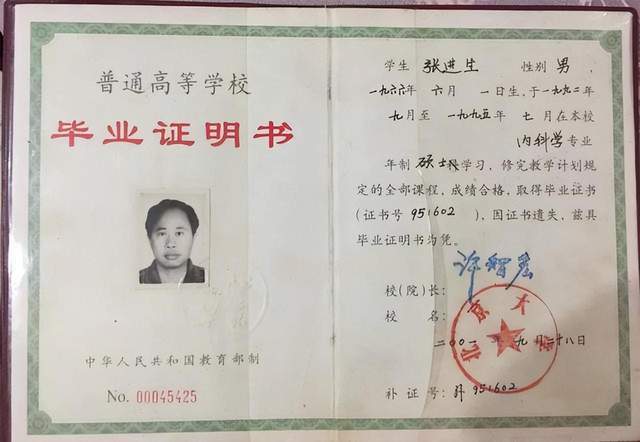 普通高等学校
毕业证明书
中华人民共和国教育部制
No. 00045425
学生 张进生 性别 男,
一九六六年 六月 一日生,于一九九二年
九月至 一九九五年 七月在本校
内科学专业
年制 硕士科学习,修完教学计划规
定的全部课程,成绩合格,取得毕业证书
(证书号 951602 ),因证书遗失,兹具
毕业证明书为凭。
校(院)长: 许智宏
校 名:
北京大学
二〇〇一年九月二十八日
补 证 号: 补 951602